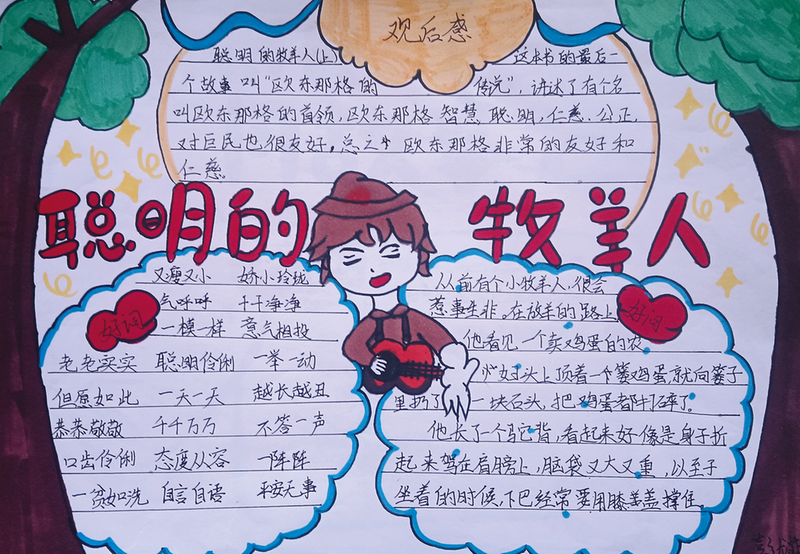 观后感
聪明的牧羊人(上) 这本书的最后一
个故事叫“欧东那格的 传说”,讲述了有个名
叫欧东那格的首领,欧东那格智慧 聪明,仁慈.公正,
对臣民也很友好。总之 欧东那格非常的友好和
仁慈。
聪明的 牧羊人
好词
又瘦又小 娇小玲珑
气呼呼 干干净净
一模一样 意气相投
老老实实 聪明伶俐 一举一动
但愿如此 一天一天 越长越丑
恭恭敬敬 千千万万 不答一声
口齿伶俐 态度从容 一阵阵
一贫如洗 自言自语 平安无事
好词
从前有个小牧羊人,很会
惹事生非。在放羊的路上
他看见一个卖鸡蛋的农
妇头上顶着一个篓鸡蛋,就向篓子
里扔了 一块石头,把鸡蛋都打碎了。
他长了一个驼背,看起来好像是身子折
起来驾在肩膀上,脑袋又大又重,以至于
坐着的时候,下巴经常要用膝盖盖撑住。